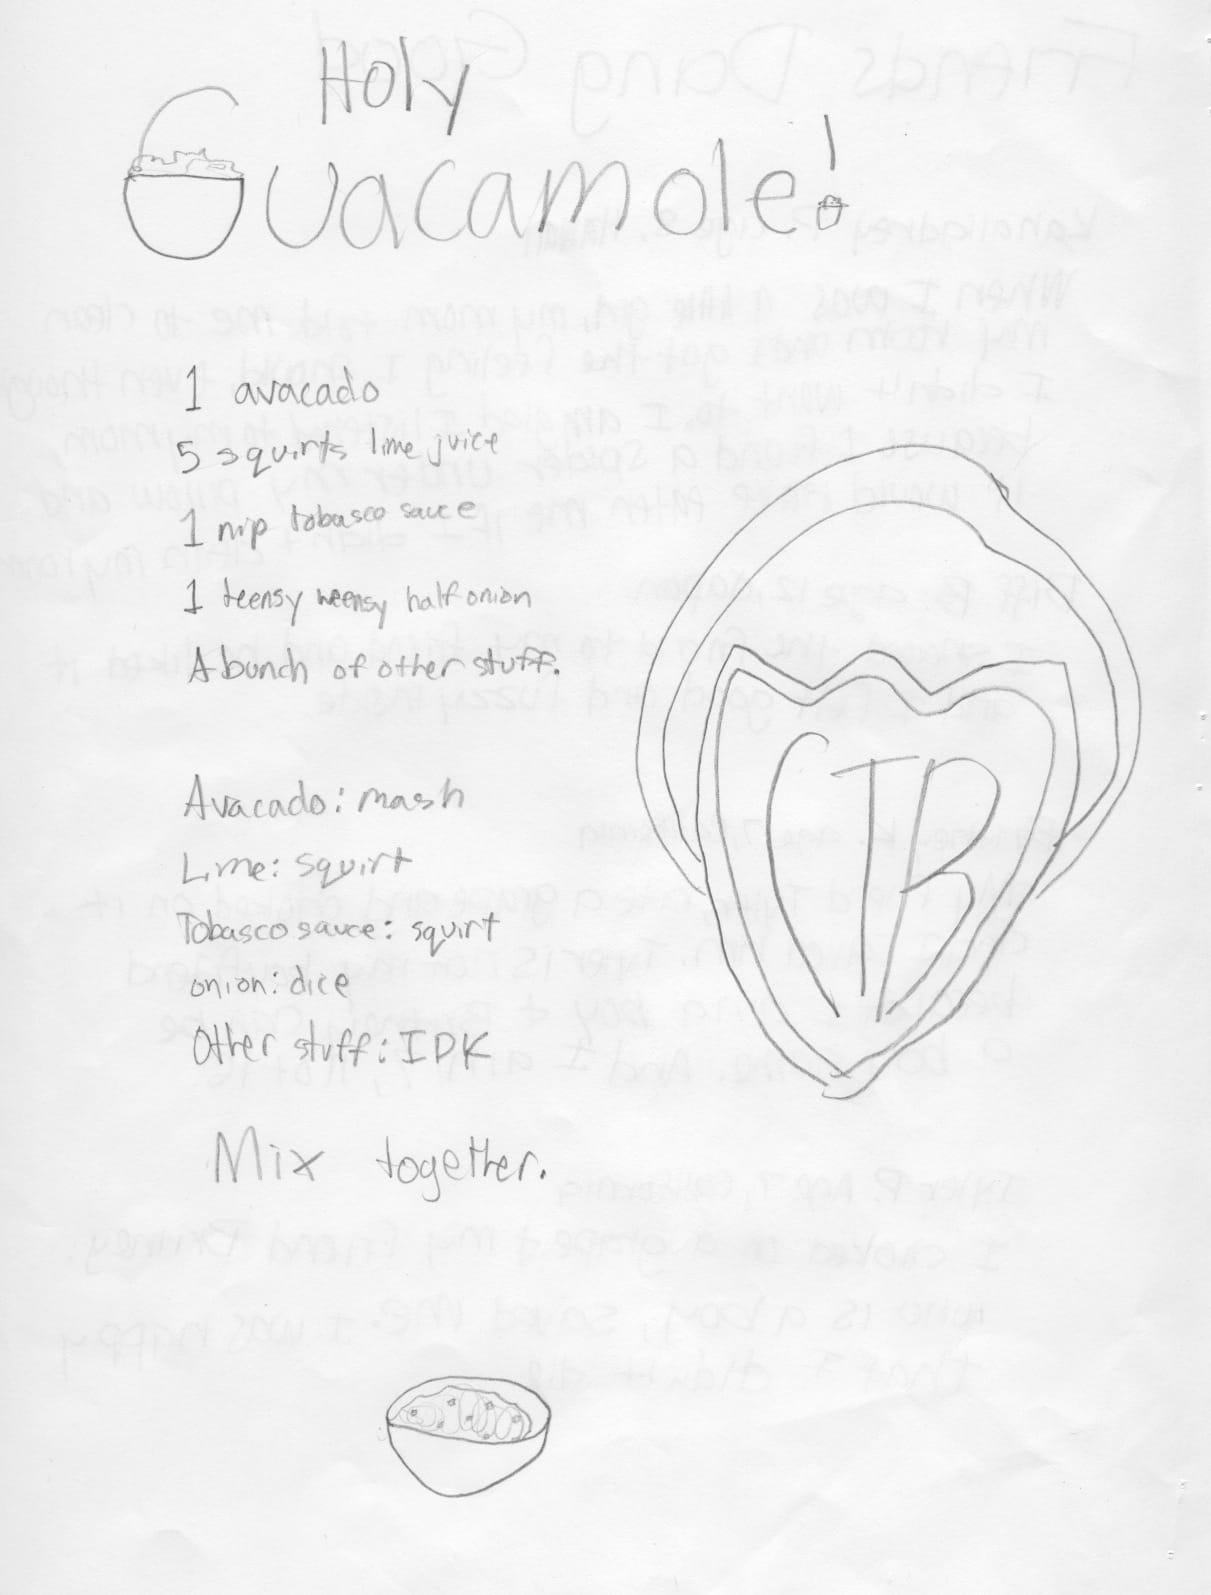 Holy
Guacamole!
1 avacado
5 squirts lime juice
1 nip tobasco sauce
1 teensy weensy half onion
A bunch of other stuff.
Avacado: mash
Lime: squirt
Tobasco sauce: squirt
onion: dice
Other stuff: IDK
Mix together.
CTR